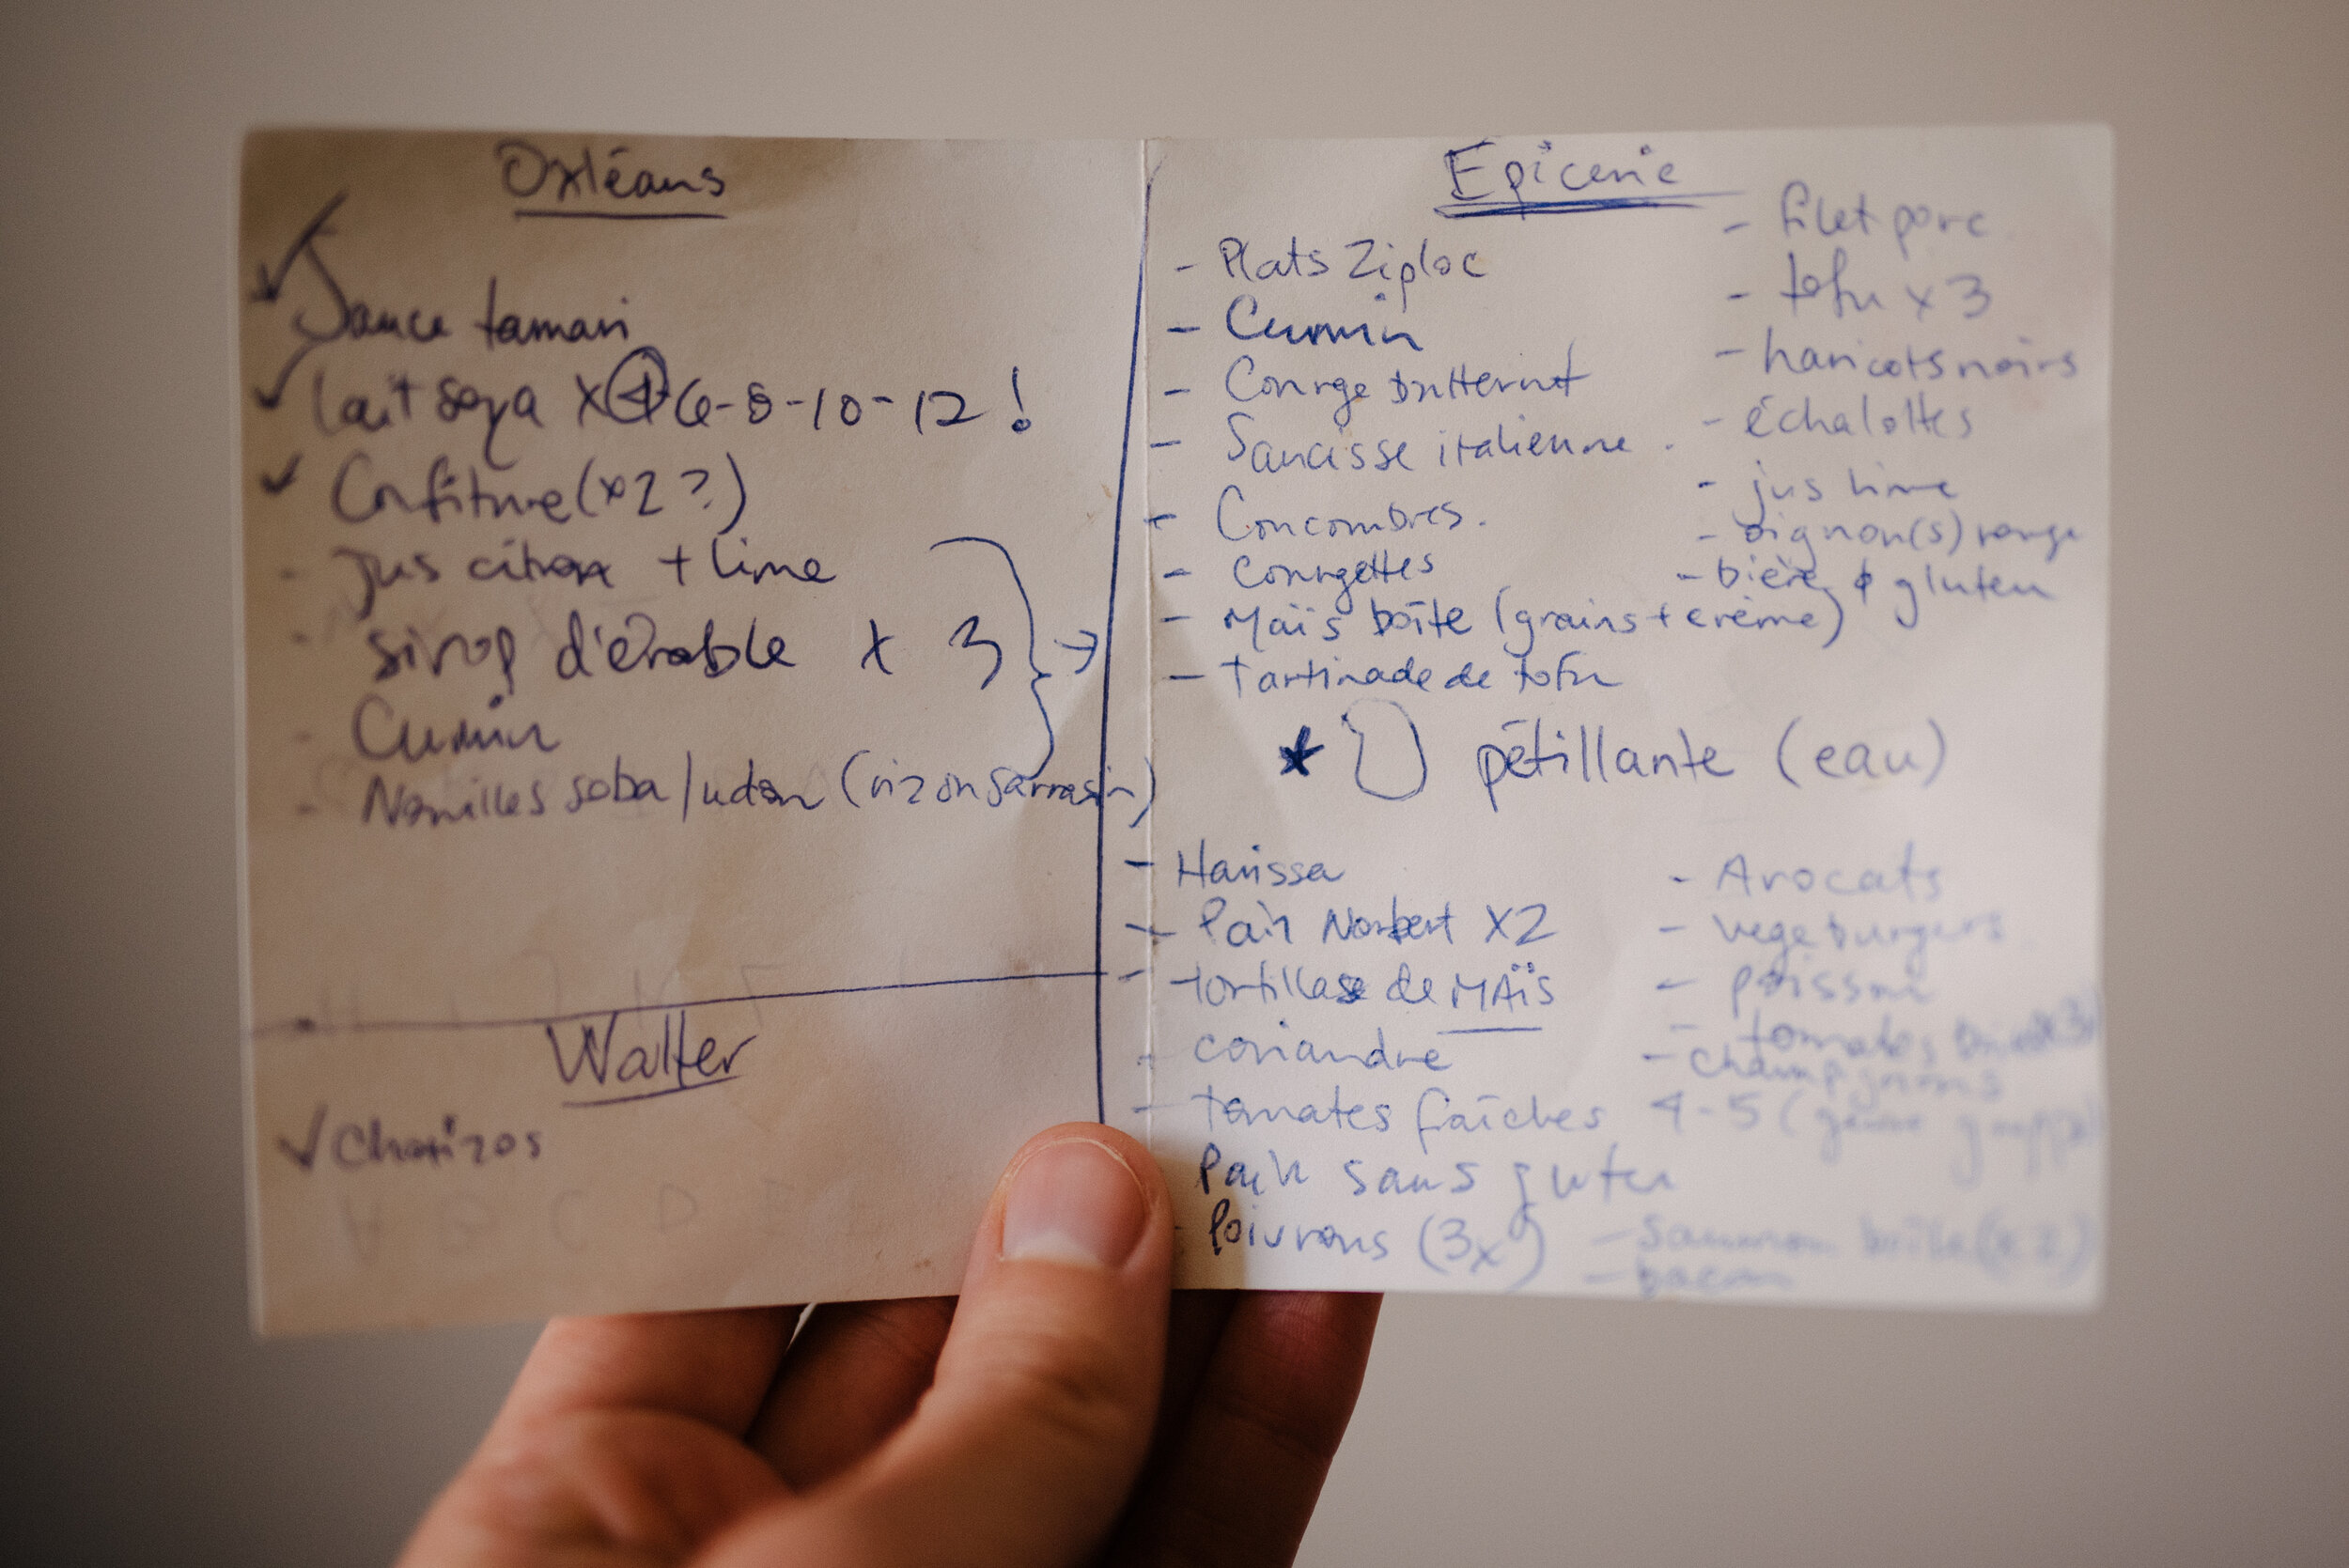 Orléans
Sauce tamari
lait soya x4 6-8-10-12!
Confiture (x2?)
- jus citron + lime
- sirop d'érable x 3
- Cumin
- Nouilles soba/udon (riz ou sarrasin)
Walter
Chorizos
Epicerie
- Plats Ziploc
- Cumin
- Courge butternut
- Saucisse italienne
- Concombres
- Courgettes
- Maïs boîte (grains + crème)
- Tartinade de tofu
- filet porc
- tofu x 3
- haricots noirs
- échalottes
- jus lime
- oignon(s) rouge
- bière ø gluten
★ pétillante (eau)
- Harissa
- Pain Norbert X2
- tortillas de MAÏS
- coriandre
- tomates fraîches 4-5
Pain sans gluten
- Poivrons (3x)
- Avocats
- végéburgers
- poisson
- tomates
- champignons
- saumon boîte (x2)
- bacon